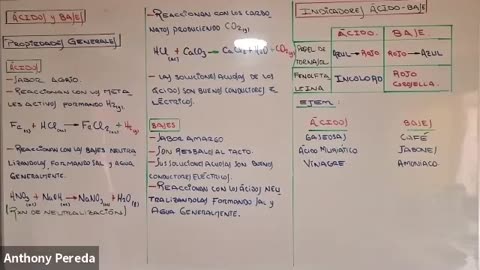 ÁCIDOS y BASE
PROPIEDADES GENERALES
ÁCIDOS
- SABOR AGRIO.
- REACCIONAN CON LOS META
LES ACTIVOS FORMANDO H2(g).
Fe(s) + HCl(ac) → FeCl2(ac) + H2(g)
- REACCIONAN CON LAS BASES NEUTRA
LIZANDO, FORMANDO SAL Y AGUA
GENERALMENTE.
HNO3(ac) + NaOH(ac) → NaNO3(ac) + H2O(l)
(RXN DE NEUTRALIZACIÓN)
- REACCIONAN CON LOS CARBO
NATOS PRODUCIENDO CO2(g).
HCl + CaCO3 → CaCl2 + H2O + CO2(g)
- LAS SOLUCIONES ACUOSAS DE LOS
ÁCIDOS SON BUENOS CONDUCTORES E
LÉCTRICOS.
BASES
- SABOR AMARGO
- SON RESBALOSAS AL TACTO.
- SUS SOLUCIONES ACUOSAS SON BUENOS
CONDUCTORES ELÉCTRICOS.
- REACCIONAN CON LOS ÁCIDOS NEU
TRALIZANDOLOS FORMANDO SAL Y
AGUA GENERALMENTE.
INDICADORES ÁCIDO-BASE
ÁCIDO. BASE
PAPEL DE TORNASOL AZUL → ROJO ROJO → AZUL
FENOLFTA
LEINA INCOLORO ROJO
GROSELLA.
EJEM:
ÁCIDOS BASES
GASEOSAS CAFÉ
ÁCIDO MURIÁTICO JABONES
VINAGRE AMONIACO
Anthony Pereda